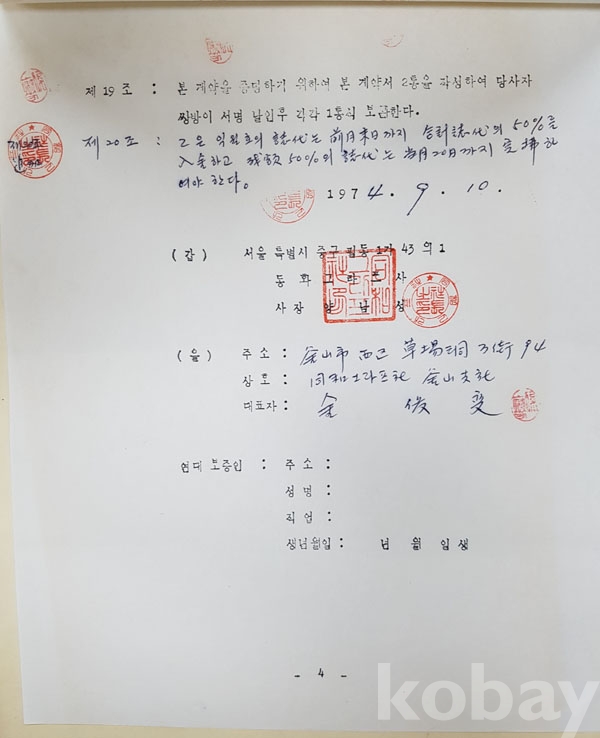 제 19 조 : 본 계약을 증명하기 위하여 본 계약서 2통을 작성하여 당사자
쌍방이 서명 날인후 각각 1통씩 보관한다.
제 20 조 : 乙은 익월호의 誌代는 前月末日까지 誌代의 50%를
入金하고 残額 50%의 誌代는 当月20日까지 하
여야 한다。
1974. 9. 10.
(갑) 서울 특별시 중구 필동 1가 43 의 1
동 화 그 라 프 사
사 장 양 남 성
(을) 주 소 : 釜山市 西区 草場洞 94
상 호 : 同和그라프社 釜山支社
대표자 : 金 俊 變
연대 보증인 : 주 소 :
성 명 :
직 업 :
생년월일 : 년 월 일생
- 4 -
kobay